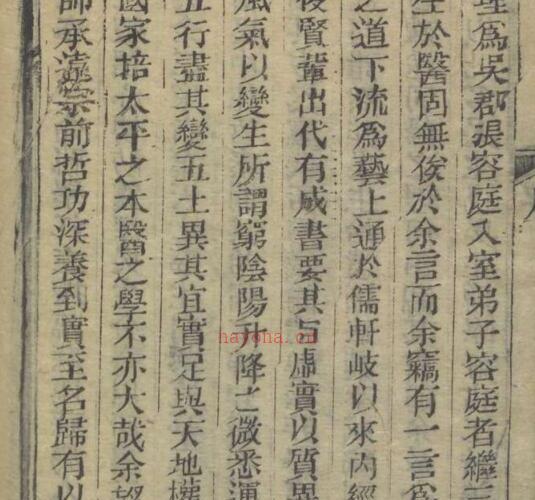 爲吳郡張容庭入室弟子容庭者繼
於醫固無俟於余言而余竊有一言爲
之道下流爲藝上通於儒軒岐以來內經
後賢輩出代有成書要其占虛實以質異
風氣以變生所謂窮陰陽升降之微悉運
五行盡其變五土異其宜實足與天地權
國家培太平之本醫之學不亦大哉余
師承遠宗前哲功深養到實至名歸有以
hayoha.cn